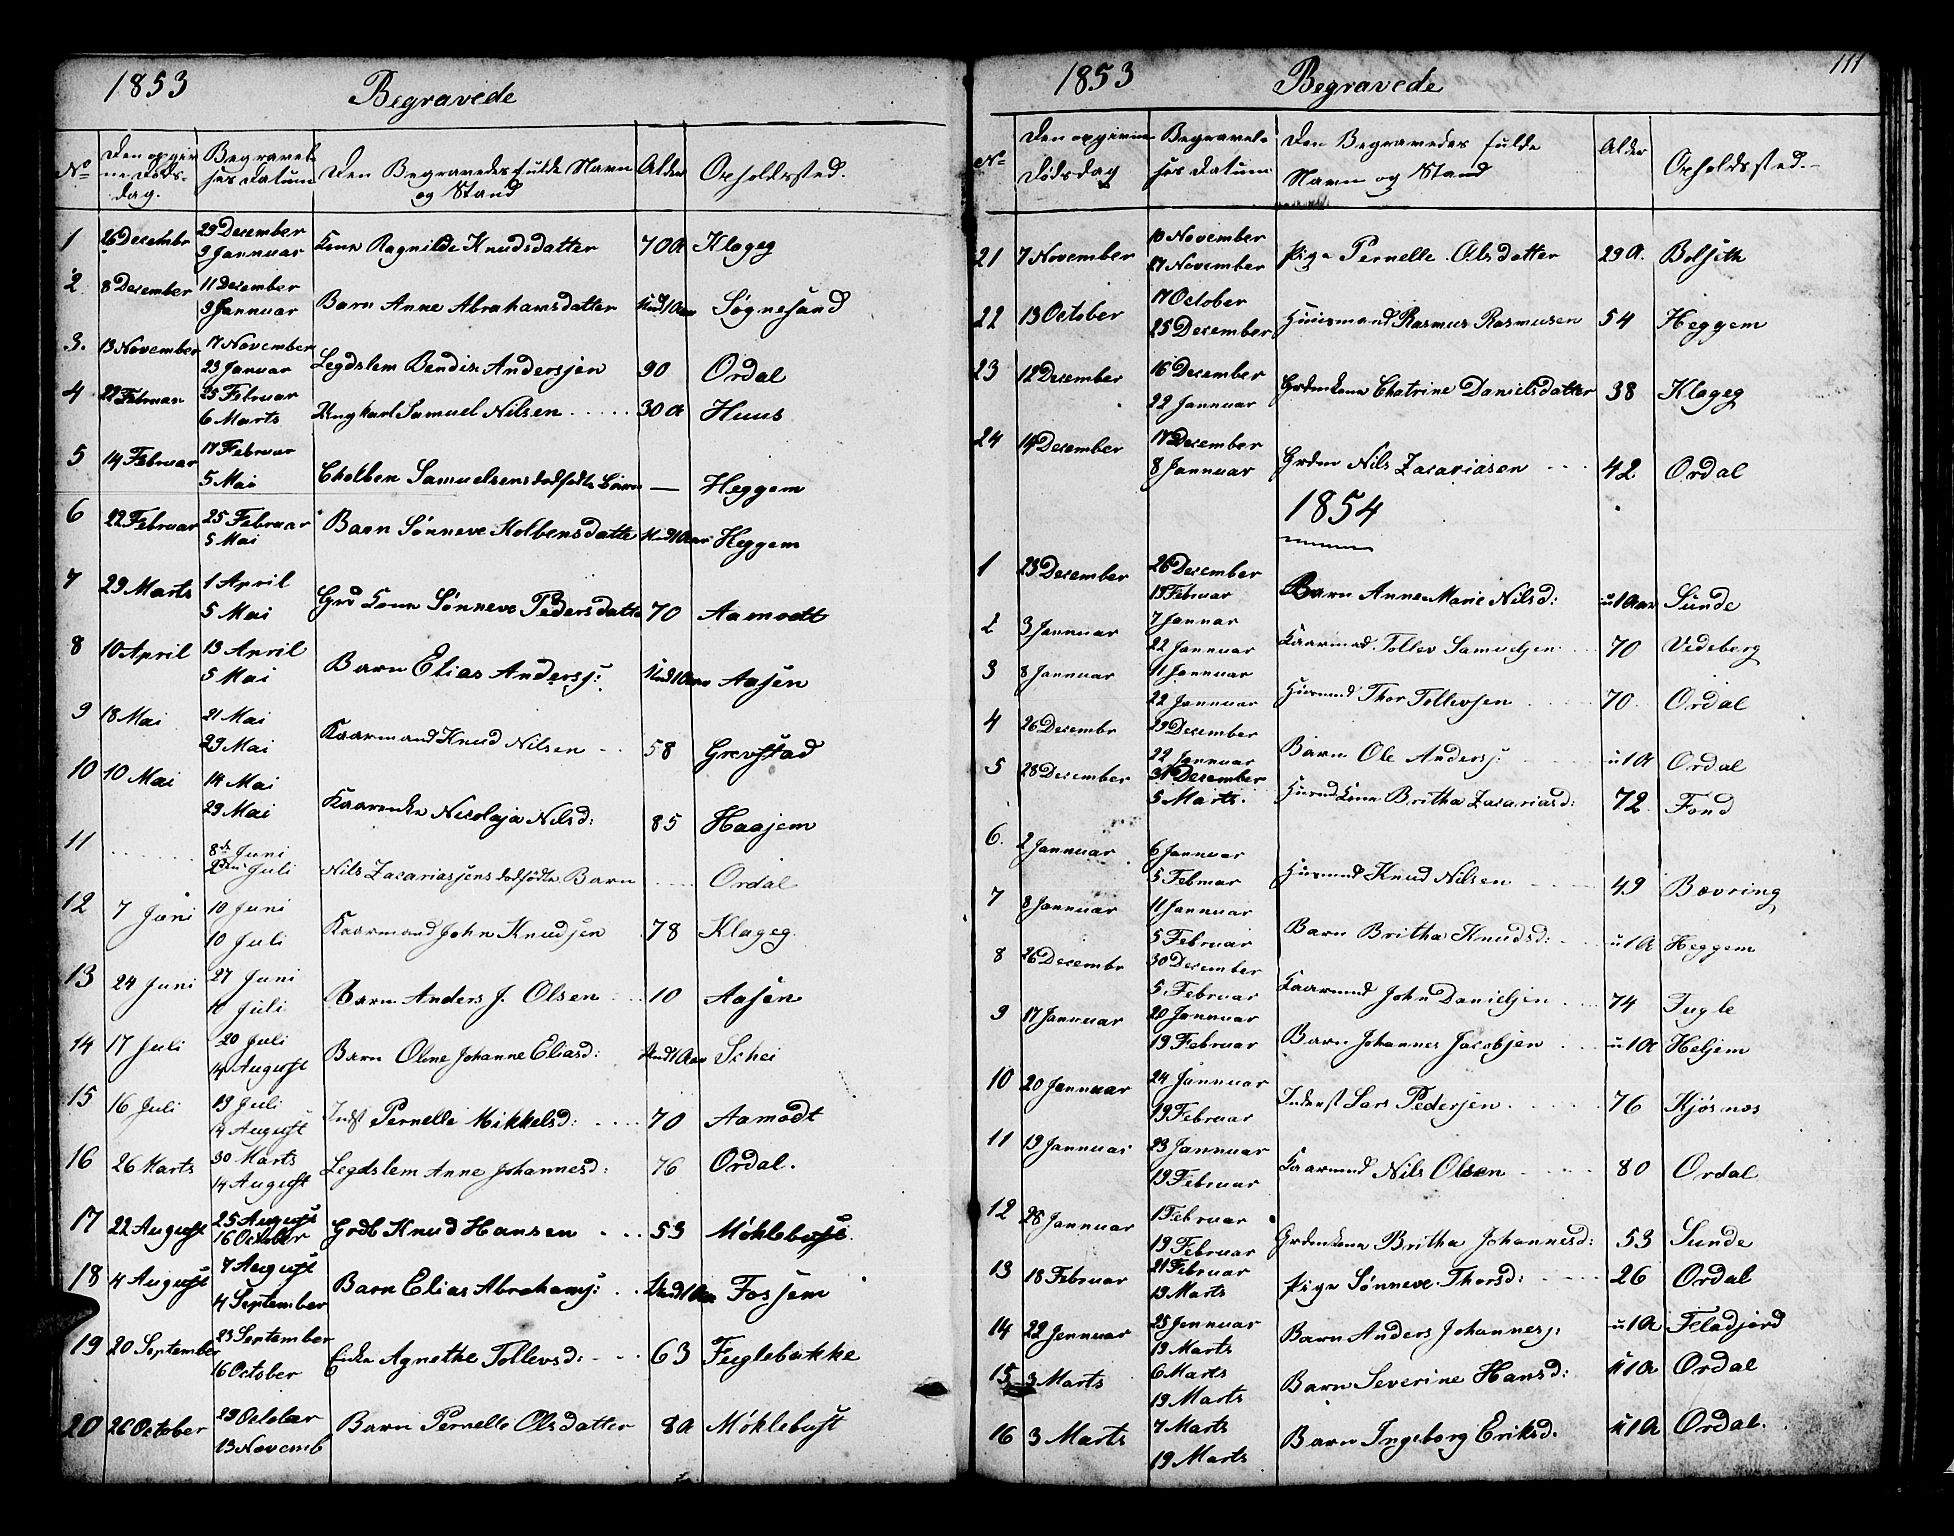 1853 Begravede
No Den opgivne Dødsdag. Begravelses Datum Den Begravedes fulde Navn og Stand Alder Opholdssted.
1 26 December 29 December 9 Januar Kone Ragnilde Knudsdatter 70 A Klageg
2 8 December 11 December 9 Januar Barn Anne Abrahamsdatter und 1 Aar Søgnesand
3. 13 November 17 November 23 Januar Legdslem Bendix Andersjen 90 Ordal
4 22 Februar 25 Februar 6 Marts Ungkarl Samuel Nilsen 30 A Huus
5 14 Februar 17 Februar 5 Mai Cholben Samuelsens dødfødte Barn — Heggem
6 22 Februar 25 Februar 5 Mai Barn Sønneve Kolbensdatte und 1 Aar Heggem
7 29 Marts 1 April 5 Mai Grd Kone Sønneve Pedersdatte 70 Aamodt
8 10 April 13 April 5 Mai Barn Elias Andersj: und 1 Aar Aasen
9 18 Mai 21 Mai 29 Mai Kaarmand Knud Nilsen 58 Grevstad
10 10 Mai 14 Mai 29 Mai Kaarenke Nicolaja Nilsd: 85 Haajem
11 8de Juni Juli Nils Zacariasjens dødfødte Barn Ordal
12 7 Juni 10 Juni 10 Juli Kaarmand John Knudsjen 78 Klageg.
13 24 Juni 27 Juni 10 Juli Barn Anders J. Olsen 10 Aasen
14 17 Juli 20 Juli 14 August Barn Oline Johanne Eliasd: und 1 Aar Schei
15 16 Juli 19 Juli 14 August Indst Pernelle Mikkelsd: 70 Aamodt
16 26 Marts 30 Marts 14 August Legdslem Anne Johannesd: 76 Ordal.
17 22 August 25 August 16 October Grdb Knud Hansen 53 Møklebust.
18 4 August 7 August 4 September Barn Elias Abrahamsj: und 1 Aar Fossem
19 20 September 23 September 16 October Enke Agnethe Tollevsd: 63 Fuglebakke
20 26 October 29 October 13 Novemb Barn Pernelle Olsdatter 8 A Møklebust
111
1853 Begravede
No Den opgivne Dødsdag Begravelses Datum Den Begravedes fulde Navn og Stand Alder Opholdssted.
21 7 November 10 November 27 November Pige Pernelle Olsdatter 29 A. Bolseth
22 13 October 17 October 25 December Huusmand Rasmus Rasmusen 54 Heggem
23 12 December 16 December 22 Januar Grdm Kone Chatrine Danielsdatter 38 Klageg
24 14 December 17 December 8 Januar Grdm Nils Zacariasen 42 Ordal
1854
1 23 December 26 December 19 Februar Barn Anne Marie Nilsd: u 1 Aar Sunde
2 3 Januar 7 Januar 22 Januar Kaarmd Tollev Samuelsjen 70 Vedeberg
3 8 Januar 11 Januar 22 Januar Huusmd Thor Tollevsjen 70 Ordal
4 26 Decembr 29 December 22 Januar Barn Ole Andersj: u 1 A Ordal
5 28 December 31 December 5 Marts. Huusmd Kone Britha Zacariasd: 72 Fond
6. 2 Januar 6 Januar 5 Februar Huusmd Knud Nilsen 49 Bøvring
7 8 Januar 11 Januar 5 Februar Barn Britha Knudsd: u 1 A Heggem
8 26 Decembr 30 December 5 Februar Kaarmd John Danielsjen 74 Fugle
9 17 Januar 20 Januar 19 Februar Barn Johannes Jacobsjen u 1 A Heljem
10 20 Januar 24 Januar 19 Februar Inderst Lars Pedersjen 76 Kjøsnes
11 19 Januar 23 Januar 19 Februar Kaarmd Nils Olsen 80 Ordal
12 28 Januar 1 Februar 19 Februar Grdm Kone Britha Johannesd: 53 Sunde
13 18 Februar 21 Februar 19 Marts Pige Sønneve Thorsd: 26 Ordal
14 22 Januar 25 Januar 19 Marts Barn Anders Johannesj: u 1 A Feladjord
15 3 Marts 6 Marts 19 Marts Barn Severine Hansd: u 1 A Ordal
16 3 Marts 7 Marts 19 Marts Barn Ingeborg Eriksd. u 1 A Ordal.